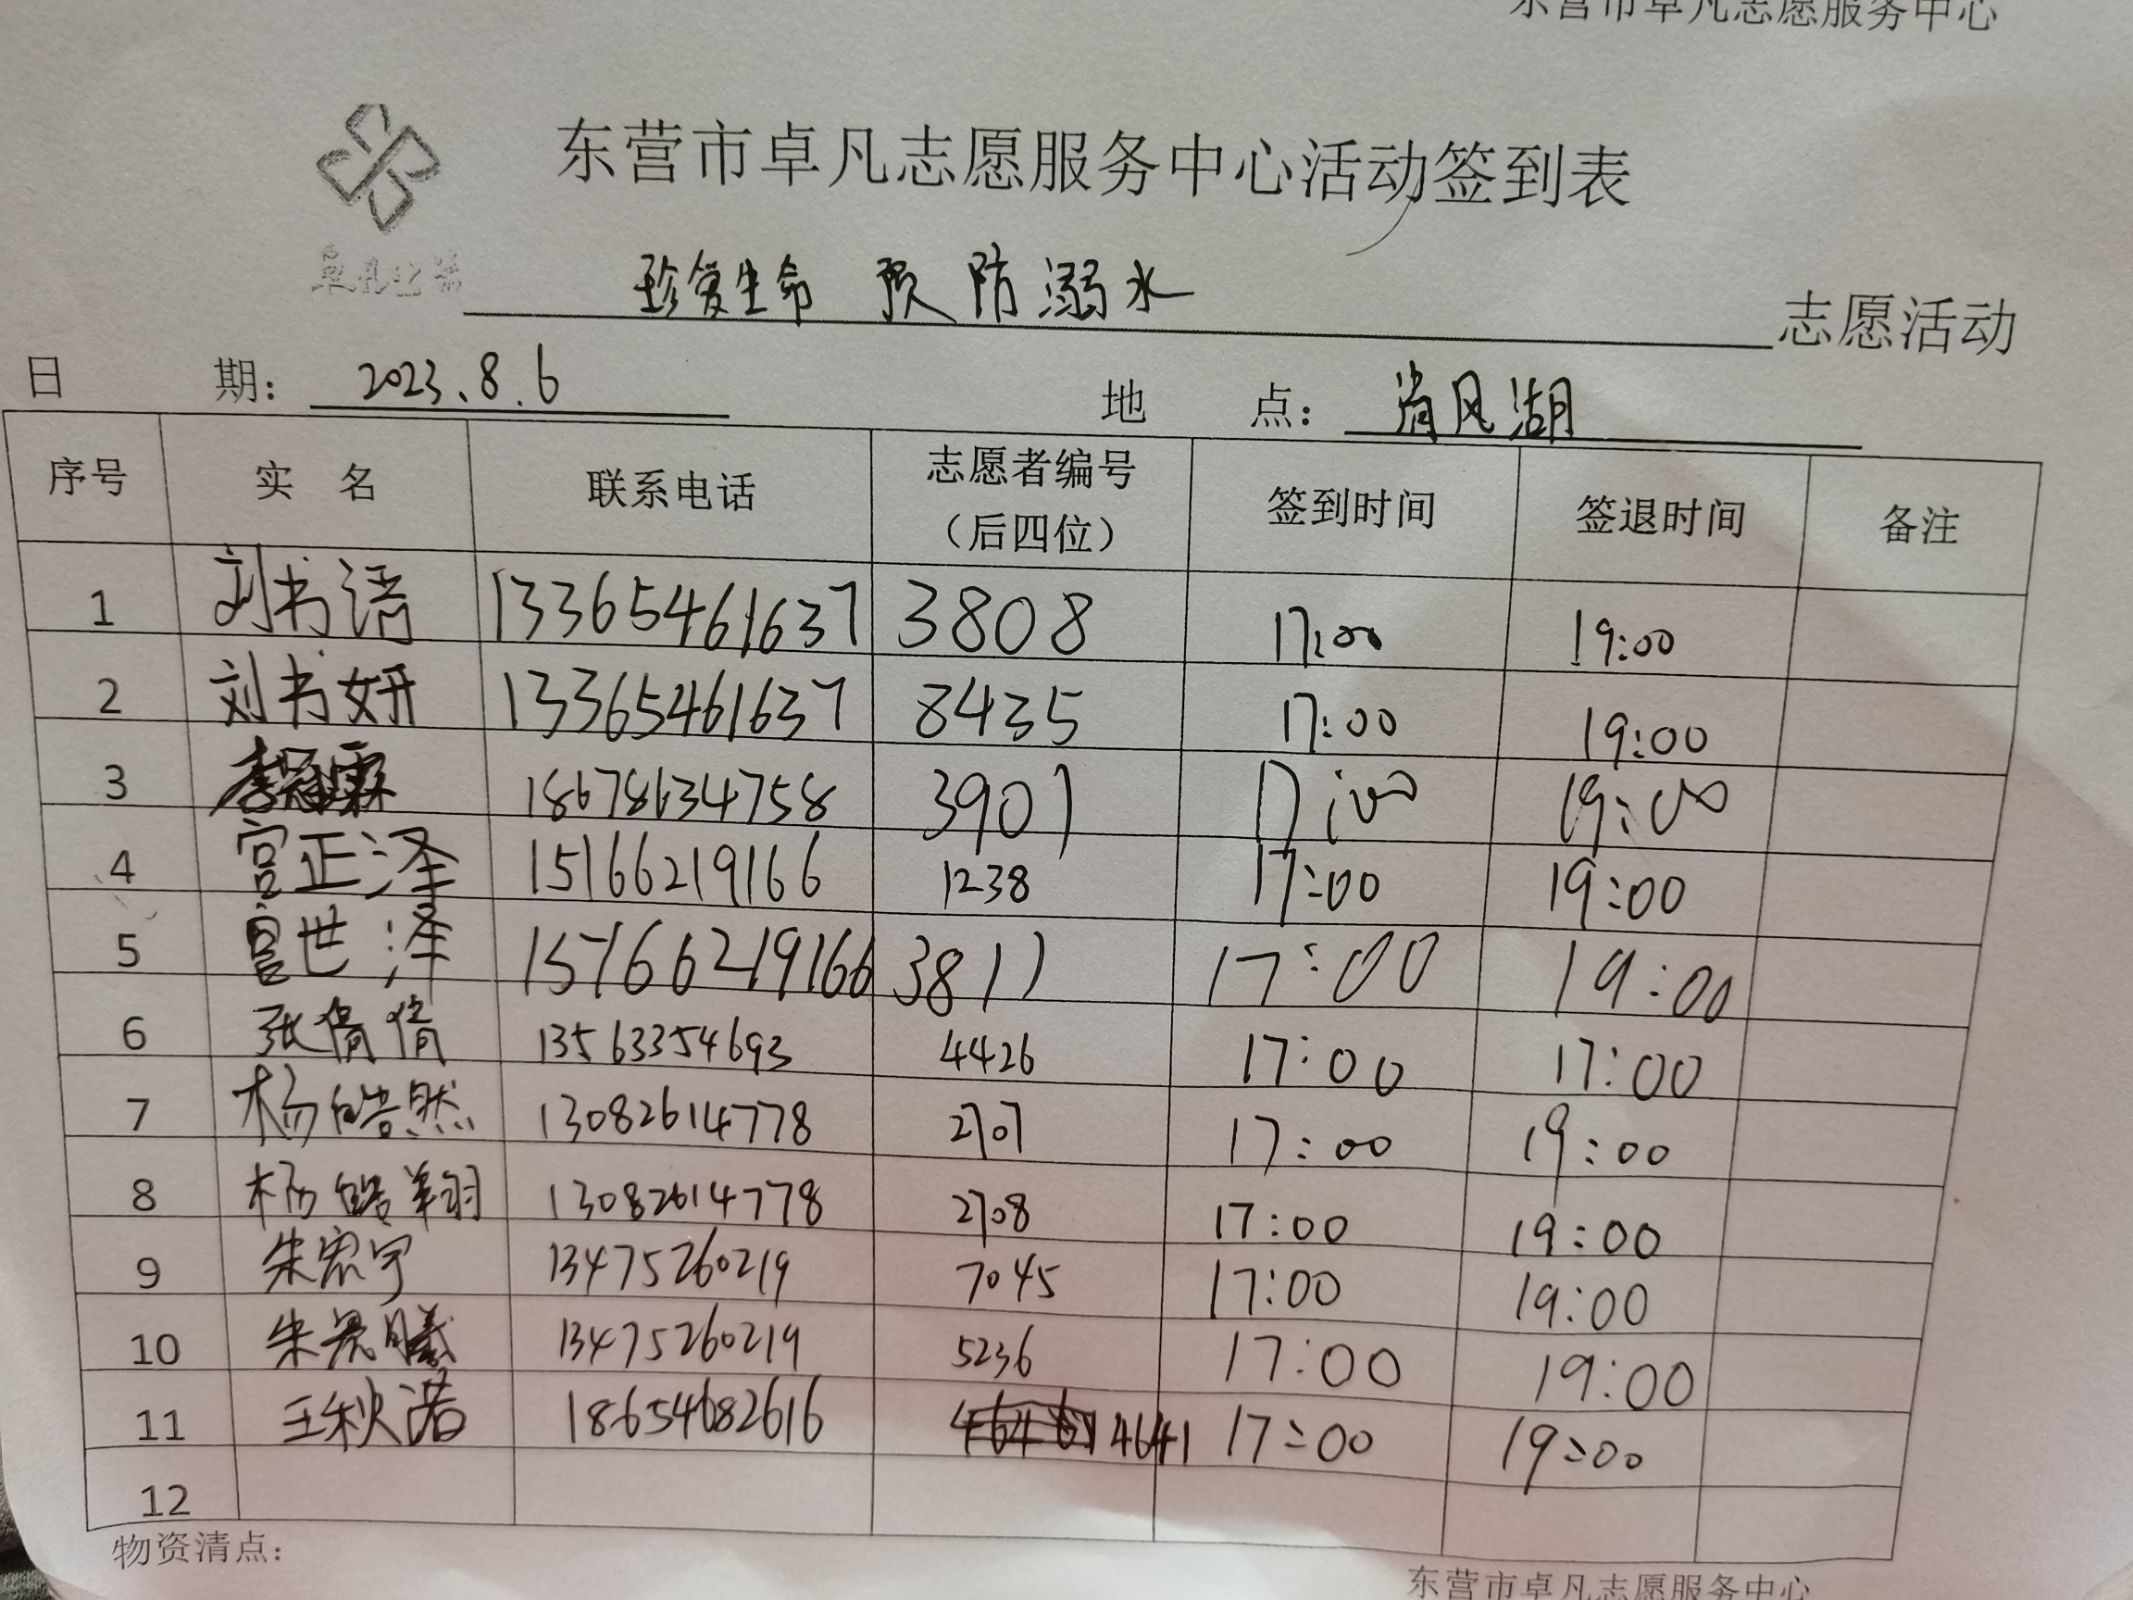 东营市卓凡志愿服务中心
东营市卓凡志愿服务中心活动签到表
珍爱生命 预防溺水 志愿活动
日 期: 2023.8.6 地 点: 清风湖
序号 实 名 联系电话 志愿者编号 (后四位) 签到时间 签退时间 备注
1 刘书语 13365461637 3808 17:00 19:00
2 刘书妍 13365461637 8435 17:00 19:00
3 18678634758 3901 17:00 19:00
4 宫正泽 15166219166 1238 17:00 19:00
5 宫世泽 15766219166 3811 17:00 19:00
6 张倩倩 13563354693 4426 17:00 17:00
7 杨皓然 13082614778 2707 17:00 19:00
8 杨皓翔 13082614778 2708 17:00 19:00
9 朱宏宇 13475260219 7045 17:00 19:00
10 朱 13475260219 5236 17:00 19:00
11 王秋诺 18654682616 4641 17:00 19:00
12
物资清点:
东营市卓凡志愿服务中心